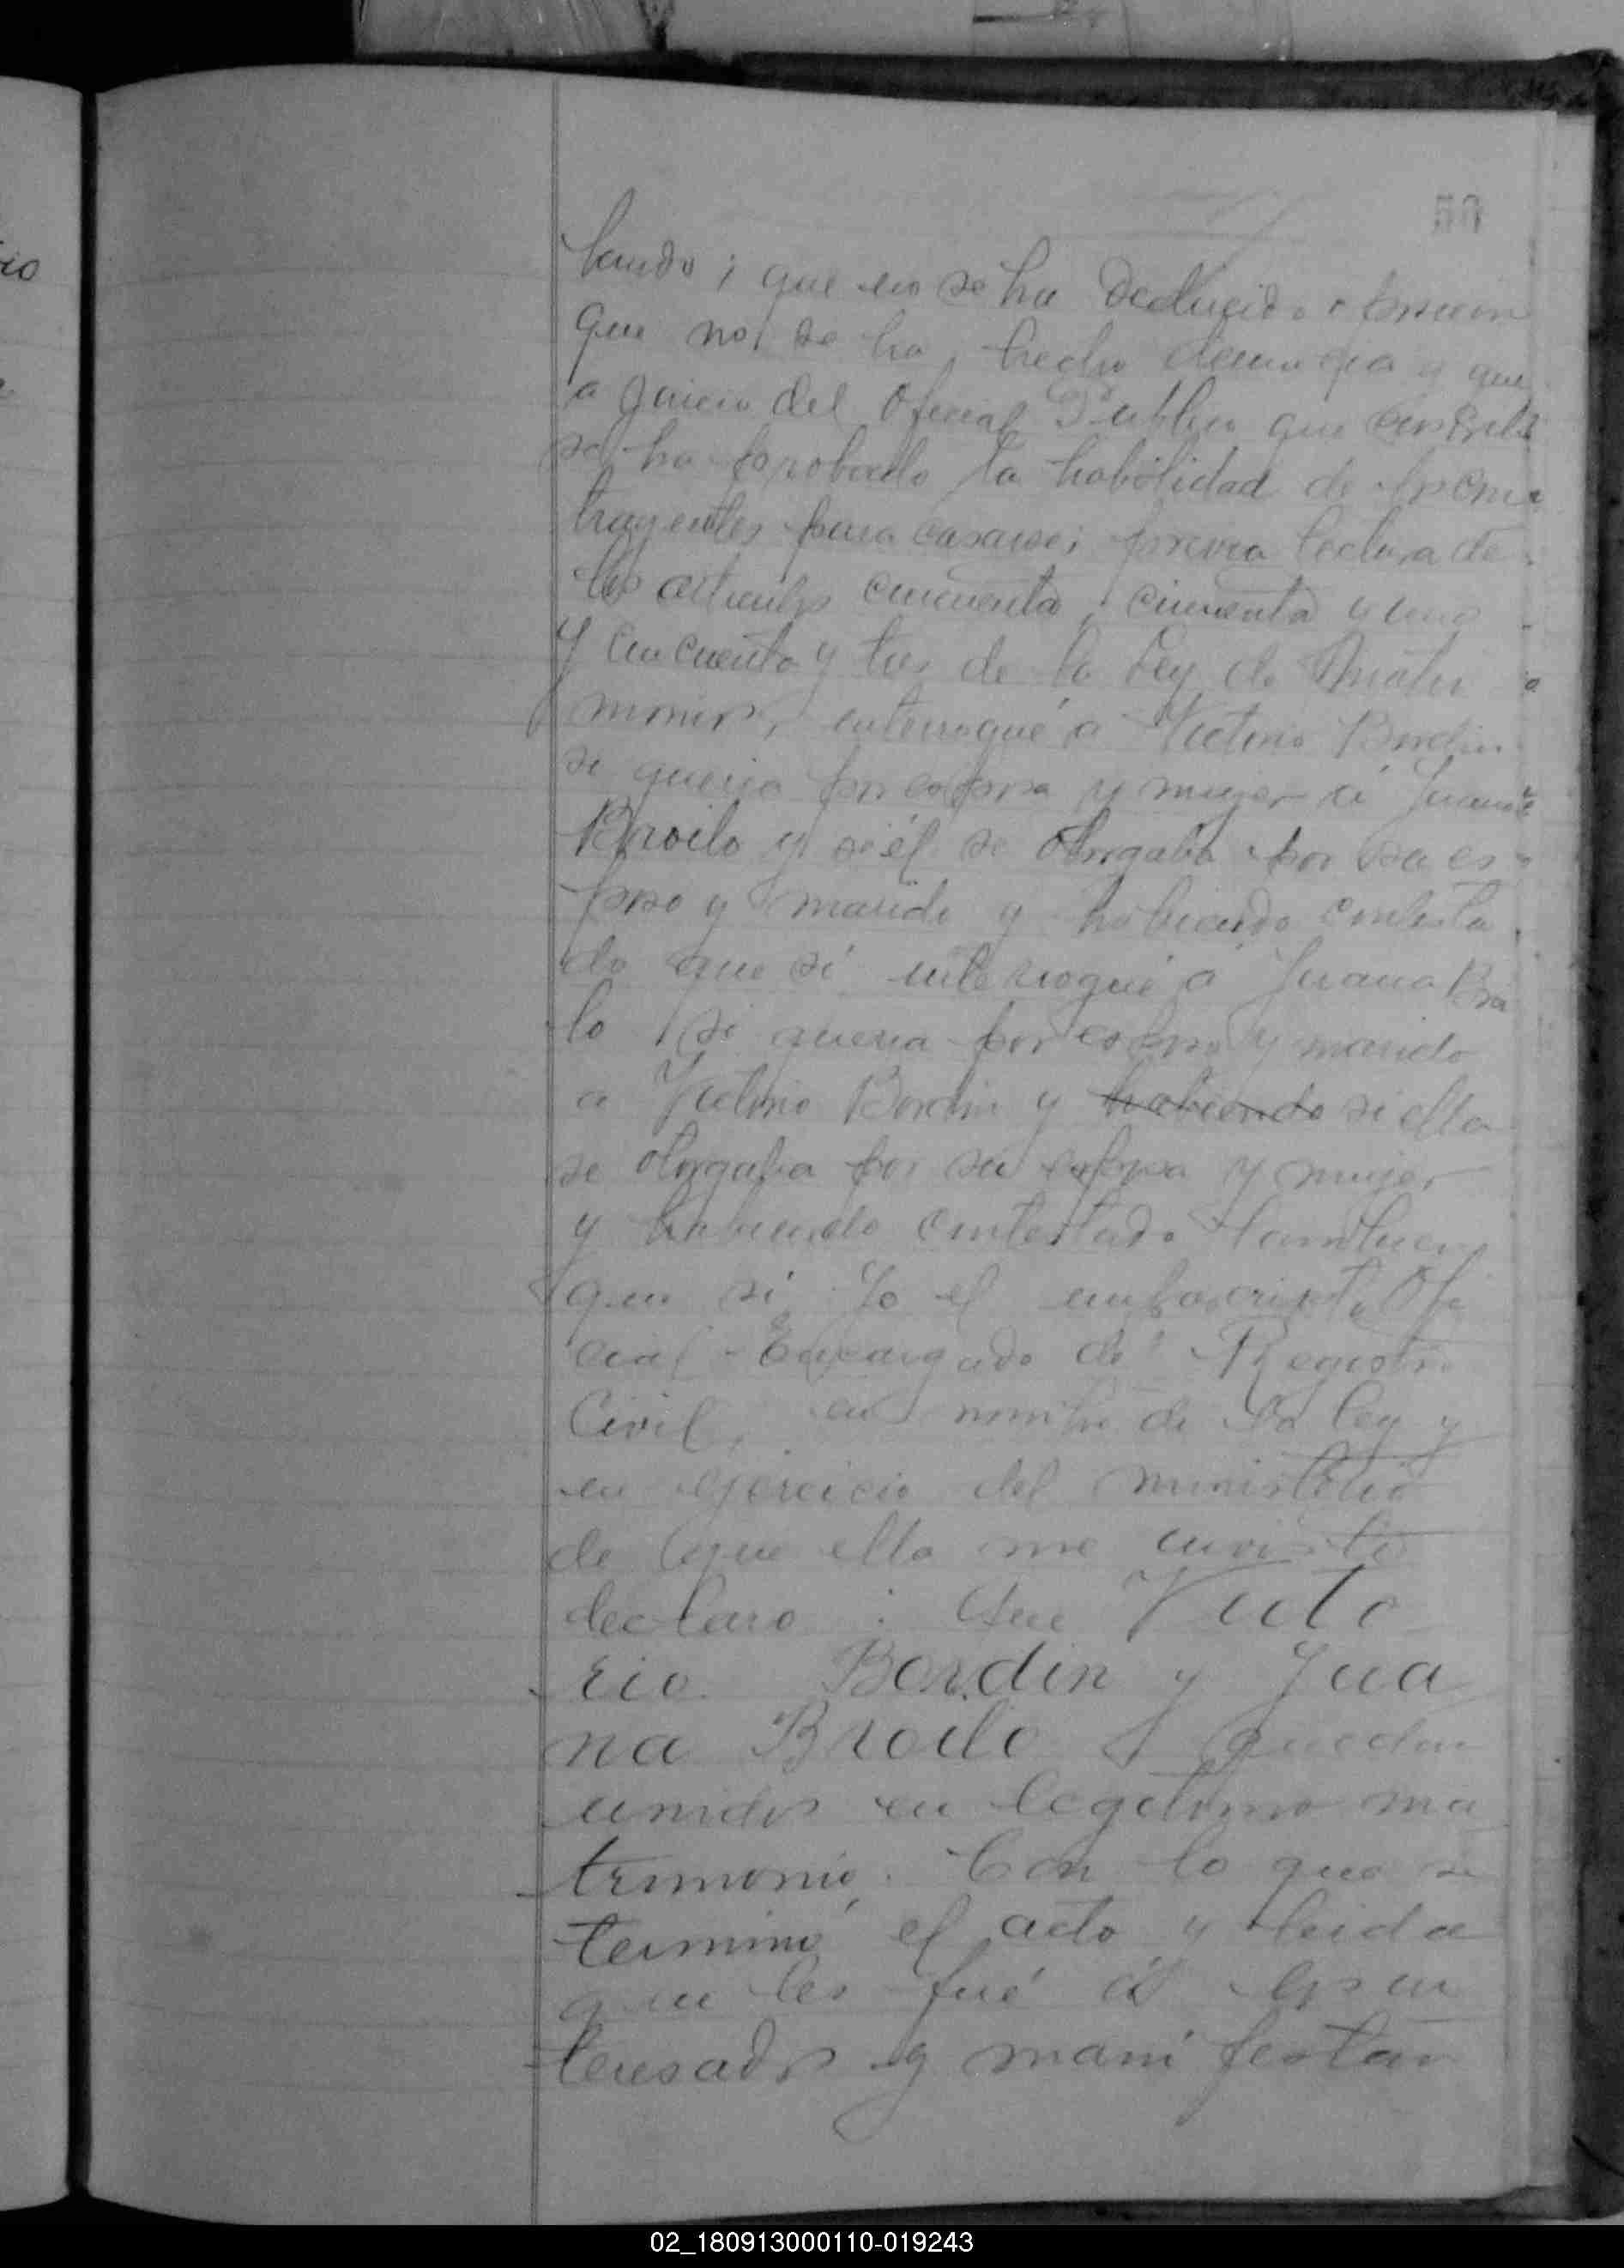 rio
50
lando; que no se ha deducido oposicion
que no se ha hecho denuncia y que
a juicio del Oficial Publico que suscribe
se ha probado la habilidad de los con
trayentes para casarse; previa lectura de
los articulos cincuenta, cincuenta y uno
y cincuenta y tres de la Ley de Matri
monio, interrogué a Victorio Bordin
si queria por esposa y mujer á Juana
Broilo y si él se otorgaba por su es
poso y marido y habiendo contesta
do que sí interrogué á Juana Broi
lo si queria por esposo y marido
a Victorio Bordin y habiendo si ella
se otorgaba por su esposa y mujer
y habiendo contestado tambien
que si. Yo el infrascripto Ofi
cial Encargado del Registro
Civil, en nombre de la ley y
en ejercicio del ministerio
de que ella me inviste
declaro: Que Victo
rio Bordin y Jua
na Broilo quedan
unidos en legitimo ma
trimonio. Con lo que se
terminó el acto y leida
que les fué á los in
teresados y manifestan
02_180913000110-019243